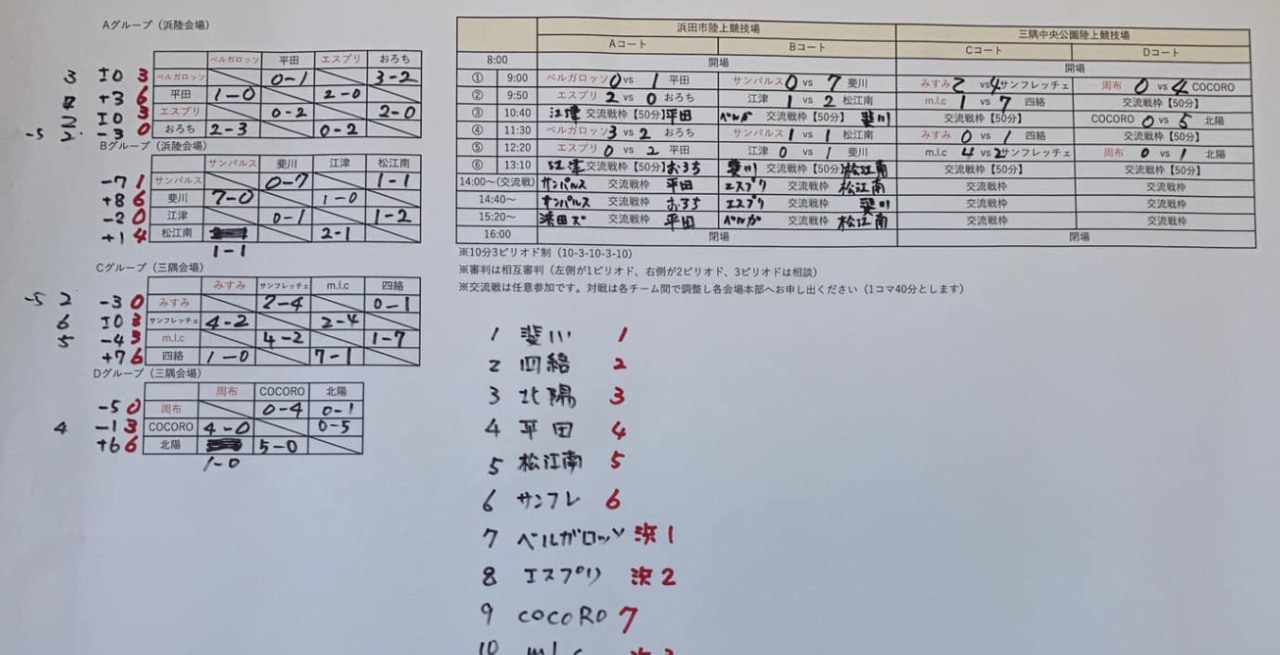 Aグループ（浜陸会場）
ベルガロッソ 平田 エスプリ おろち
3 ±0 3 ベルガロッソ 0-1 3-2
+3 6 平田 1-0 2-0
2 ±0 3 エスプリ 0-2 2-0
-5 2 -3 0 おろち 2-3 0-2
Bグループ（浜陸会場）
サンパルス 斐川 江津 松江南
-7 1 サンパルス 0-7 1-1
+8 6 斐川 7-0 1-0
-2 0 江津 0-1 1-2
+1 4 松江南 2-1
1-1
Cグループ（三隅会場）
みすみ サンフレッチェ m.l.c 四絡
-5 2 -3 0 みすみ 2-4 0-1
6 ±0 3 サンフレッチェ 4-2 2-4
5 -4 3 m.l.c 4-2 1-7
+7 6 四絡 1-0 7-1
Dグループ（三隅会場）
周布 COCORO 北陽
-5 0 周布 0-4 0-1
4 -1 3 COCORO 4-0 0-5
+6 6 北陽 5-0
1-0
浜田市陸上競技場 三隅中央公園陸上競技場
Aコート Bコート Cコート Dコート
8:00 開場 開場
① 9:00 ベルガロッソ 0 vs 1 平田 サンパルス 0 vs 7 斐川 みすみ 2 vs 4 サンフレッチェ 周布 0 vs 4 COCORO
② 9:50 エスプリ 2 vs 0 おろち 江津 1 vs 2 松江南 m.l.c 1 vs 7 四絡 交流戦枠【50分】
③ 10:40 江津 交流戦枠【50分】平田 ベルガ 交流戦枠【50分】斐川 交流戦枠【50分】 COCORO 0 vs 5 北陽
④ 11:30 ベルガロッソ 3 vs 2 おろち サンパルス 1 vs 1 松江南 みすみ 0 vs 1 四絡 交流戦枠【50分】
⑤ 12:20 エスプリ 0 vs 2 平田 江津 0 vs 1 斐川 m.l.c 4 vs 2 サンフレッチェ 周布 0 vs 1 北陽
⑥ 13:10 江津 交流戦枠【50分】おろち 斐川 交流戦枠【50分】松江南 交流戦枠【50分】 交流戦枠【50分】
14:00～(交流戦) サンパルス 交流戦枠 平田 エスプリ 交流戦枠 松江南 交流戦枠 交流戦枠
14:40～ サンパルス 交流戦枠 おろち エスプリ 交流戦枠 斐川 交流戦枠 交流戦枠
15:20～ 浜田ズ 交流戦枠 平田 ベルガ 交流戦枠 松江南 交流戦枠 交流戦枠
16:00 閉場 閉場
※10分3ピリオド制（10-3-10-3-10）
※審判は相互審判（左側が1ピリオド、右側が2ピリオド、3ピリオドは相談）
※交流戦は任意参加です。対戦は各チーム間で調整し各会場本部へお申し出ください（1コマ40分とします）
1 斐川 1
2 四絡 2
3 北陽 3
4 平田 4
5 松江南 5
6 サンフレ 6
7 ベルガロッソ 浜1
8 エスプリ 浜2
9 COCORO 7
10 m.l.c